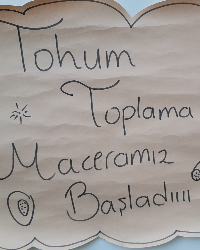 Tohum
Toplama
Maceramız
Başladıııı